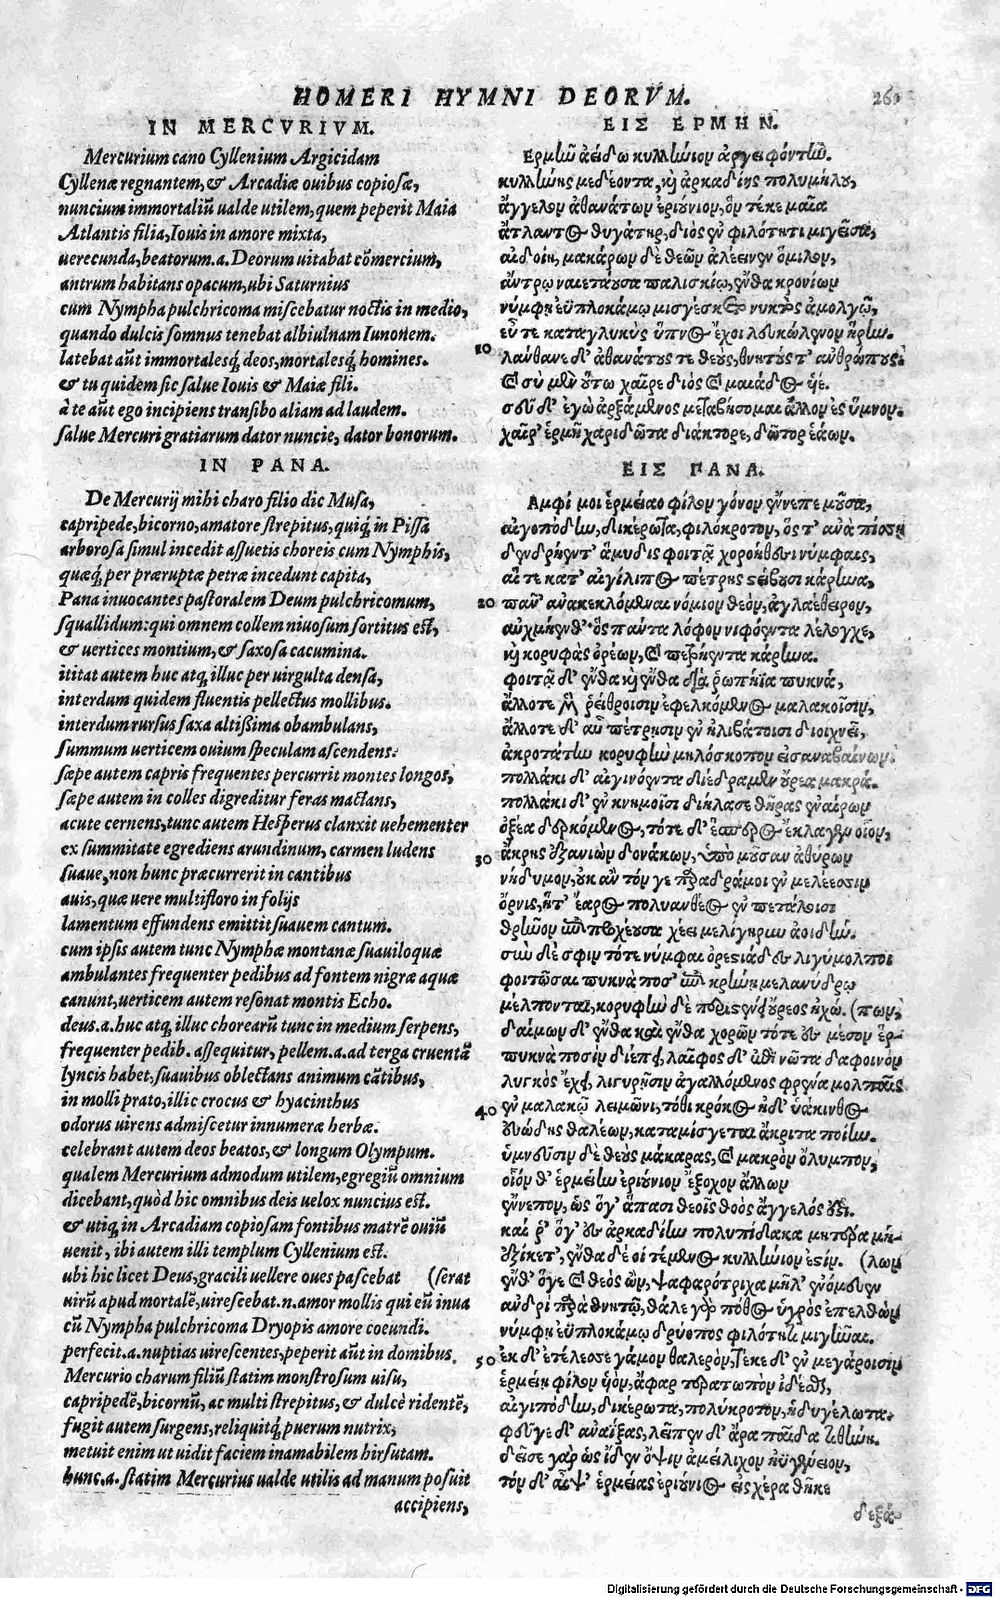 HOMERI HYMNI DEORVM.
261
IN MERCVRIVM.
Mercurium cano Cyllenium Argicidam
Cyllenæ regnantem, & Arcadiæ ouibus copiosæ,
nuncium immortaliũ ualde utilem, quem peperit Maia
Atlantis filia, Iouis in amore mixta,
uerecunda, beatorum .a. Deorum uitabat cõmercium,
antrum habitans opacum, ubi Saturnius
cum Nympha pulchricoma miscebatur noctis in medio,
quando dulcis somnus tenebat albiulnam Iunonem.
latebat aũt immortalesq́; deos, mortalesq́; homines.
& tu quidem sic salue Iouis & Maiæ fili.
à te aũt ego incipiens transibo aliam ad laudem.
salue Mercuri gratiarum dator nuncie, dator bonorum.
IN PANA.
De Mercurij mihi charo filio dic Musa,
capripede, bicorno, amatore strepitus, quiq́; in Pissa
arborosa simul incedit assuetis choreis cum Nymphis,
quæq́; per præruptæ petræ incedunt capita,
Pana inuocantes pastoralem Deum pulchricomum,
squallidum: qui omnem collem niuosum sortitus est,
& uertices montium, & saxosa cacumina.
ititat autem huc atq́; illuc per uirgulta densa,
interdum quidem fluentis pellectus mollibus.
interdum rursus saxa altißima obambulans,
summum uerticem ouium speculam ascendens.
sæpe autem capris frequentes percurrit montes longos,
sæpe autem in colles digreditur feras mactans,
acute cernens, tunc autem Hesperus clanxit uehementer
ex summitate egrediens arundinum, carmen ludens
suaue, non hunc præcurrerit in cantibus
auis, quæ uere multifloro in folijs
lamentum effundens emittit suauem cantum.
cum ipsis autem tunc Nymphæ montanæ suauiloquæ
ambulantes frequenter pedibus ad fontem nigræ aquæ
canunt, uerticem autem resonat montis Echo.
deus .a. huc atq́; illuc chorearũ tunc in medium serpens,
frequenter pedib. assequitur, pellem .a. ad terga cruentã
lyncis habet, suauibus oblectans animum cãtibus,
in molli prato, illic crocus & hyacinthus
odorus uirens admiscetur innumeræ herbæ.
celebrant autem deos beatos, & longum Olympum.
qualem Mercurium admodum utilem, egregiũ omnium
dicebant, quòd hic omnibus deis uelox nuncius est.
& utiq́; in Arcadiam copiosam fontibus matrẽ ouiũ
uenit, ibi autem illi templum Cyllenium est.
ubi hic licet Deus, gracili uellere oues pascebat (serat
uirũ apud mortalẽ, uirescebat .n. amor mollis qui eũ inua
cũ Nympha pulchricoma Dryopis amore coeundi.
perfecit .a. nuptias uirescentes, peperit aũt in domibus
Mercurio charum filiũ statim monstrosum uisu,
capripedẽ, bicornũ, ac multi strepitus, & dulcè ridentẽ,
fugit autem surgens, reliquitq́; puerum nutrix,
metuit enim ut uidit faciem inamabilem hirsutam.
hunc .a. statim Mercurius ualde utilis ad manum posuit
accipiens,
ΕΙΣ ΕΡΜΗΝ.
Ερμῆν ἀείδω κυλλήνιον ἀργειφόντην.
κυλλήνης μεδέοντα, καὶ ἀρκαδίης πολυμήλου,
ἄγγελον ἀθανάτων ἐριούνιον, ὃν τέκε μαῖα
ἄτλαντος θυγάτηρ, διὸς ἐν φιλότητι μιγεῖσα,
αἰδοίη, μακάρων δὲ θεῶν ἀλέεινεν ὅμιλον,
ἄντρῳ ναιετάουσα παλισκίῳ, ἔνθα κρονίων
νύμφῃ ἐϋπλοκάμῳ μισγέσκετο νυκτὸς ἀμολγῷ,
εὖτε κατὰ γλυκὺς ὕπνος ἔχοι λευκώλενον ἥρην.
10 λάνθανε δ' ἀθανάτους τε θεοὺς, θνητούς τ' ἀνθρώπους.
καὶ σὺ μὲν οὕτω χαῖρε διὸς καὶ μαιάδος υἱέ.
σεῦ δ' ἐγὼ ἀρξάμενος μεταβήσομαι ἄλλον ἐς ὕμνον.
χαῖρ' ἑρμῆ χαριδῶτα διάκτορε, δῶτορ ἐάων.
ΕΙΣ ΠΑΝΑ.
Αμφί μοι ἑρμείαο φίλον γόνον ἔννεπε μοῦσα,
αἰγοπόδην, δικέρωτα, φιλόκροτον, ὅς τ' ἀνὰ πίσση
δενδρήεντ' ἄμυδις φοιτᾷ χοροήθεσι νύμφαις,
αἵ τε κατ' αἰγίλιπος πέτρης στείβουσι κάρηνα,
20 πᾶν' ἀνακεκλόμεναι νόμιον θεὸν, ἀγλαέθειρον,
αὐχμήενθ' ὃς πάντα λόφον νιφόεντα λέλογχε,
καὶ κορυφὰς ὀρέων, καὶ πετρήεντα κάρηνα.
φοιτᾷ δ' ἔνθα καὶ ἔνθα διὰ ῥωπήϊα πυκνά,
ἄλλοτε μὲν ῥείθροισιν ἐφελκόμενος μαλακοῖσιν,
ἄλλοτε δ' αὖ πέτρῃσιν ἐν ἠλιβάτοισι διοιχνεῖ,
ἀκροτάτην κορυφὴν μηλόσκοπον εἰσαναβαίνων.
πολλάκι δ' αἰγινόεντα διέδραμεν οὔρεα μακρά.
πολλάκι δ' ἐν κνημοῖσι διήλασε θῆρας ἐναίρων
ὀξέα δερκόμενος, τότε δ' ἕσπερος ἔκλαγεν οἷον,
30 ἄκρης ἐξανιὼν δονάκων, ὑπὸ μοῦσαν ἀθύρων
νήδυμον, οὐκ ἂν τόν γε παραδράμοι ἐν μελέεσσιν
ὄρνις, ἥτ' ἔαρος πολυανθέος ἐν πετάλοισι
θρῆνον ἐπιπροχέουσα χέει μελίγηρυν ἀοιδήν.
σὺν δέ σφιν τότε νύμφαι ὀρεστιάδες λιγύμολποι
φοιτῶσαι πυκνὰ ποσὶ ἐπὶ κρήνῃ μελανύδρῳ
μέλπονται, κορυφὴν δὲ περιστένει οὔρεος ἠχώ. (πων,
δαίμων δ' ἔνθα καὶ ἔνθα χορῶν τότε ἐς μέσον ἕρ-
πυκνὰ ποσὶν διέπει, λαῖφος δ' ἐπὶ νῶτα δαφοινὸν
λυγκὸς ἔχει, λιγυρῇσιν ἀγαλλόμενος φρένα μολπαῖς
40 ἐν μαλακῷ λειμῶνι, τόθι κρόκος ἠδ' ὑάκινθος
εὐώδης θαλέων, καταμίσγεται ἄκριτα ποίην.
ὑμνεῦσιν δὲ θεοὺς μάκαρας, καὶ μακρὸν ὄλυμπον,
οἷόν θ' ἑρμείην ἐριούνιον ἔξοχον ἄλλων
ἔννεπον, ὡς ὅγ' ἅπασι θεοῖς θοὸς ἄγγελός ἐστι.
καί ῥ' ὅγ' ἐς ἀρκαδίην πολυπίδακα μητέρα μή-
ἐξίκετ', ἔνθα δέ οἱ τέμενος κυλλήνιον ἐστίν. (λων
ἔνθ' ὅγε καὶ θεὸς ὢν, ψαφαρότριχα μῆλ' ἐνόμευεν
ἀνδρὶ παρὰ θνητῷ, θάλε γὰρ πόθος ὑγρὸς ἐπελθὼν
νύμφῃ ἐϋπλοκάμῳ δρύοπος φιλότητι μιγῆναι.
50 ἐκ δ' ἐτέλεσσε γάμον θαλερὸν, τέκε δ' ἐν μεγάροισιν
ἑρμείῃ φίλον υἱὸν, ἄφαρ τερατωπὸν ἰδέσθαι,
αἰγιπόδην, δικέρωτα, πολύκροτον, ἡδυγέλωτα.
φεῦγε δ' ἀναΐξας, λεῖπεν δ' ἄρα παῖδα τιθήνη.
δεῖσε γὰρ ὡς ἴδεν ὄψιν ἀμείλιχον ἠϋγένειον,
τὸν δ' αἶψ' ἑρμείας ἐριούνιος εἰς χέρα θῆκε
δεξά-
Digitalisierung gefördert durch die Deutsche Forschungsgemeinschaft - DFG